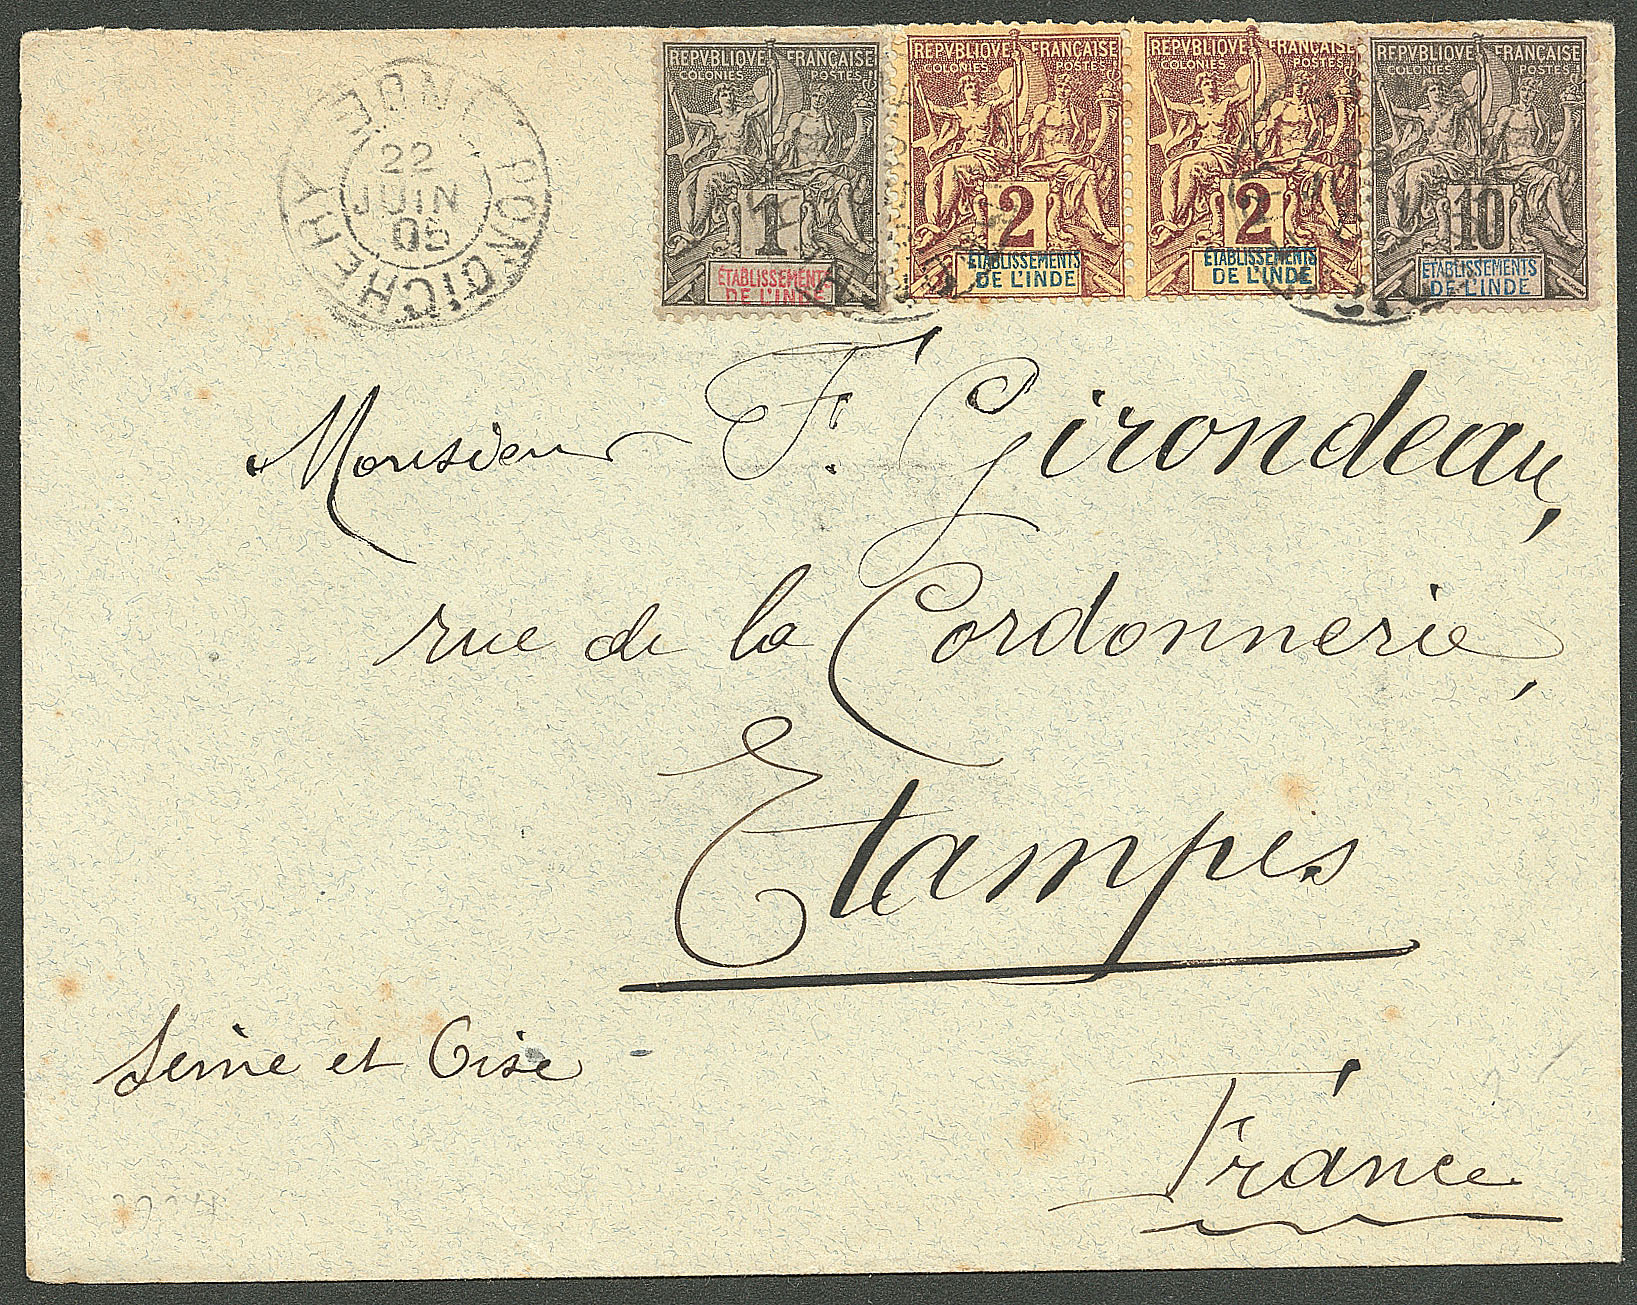 PONDICHERY INDE
22
JUIN
05
REPVBLIQVE FRANÇAISE
COLONIES POSTES
1
ÉTABLISSEMENTS
DE L'INDE
REPVBLIQVE FRANÇAISE
COLONIES POSTES
2
ÉTABLISSEMENTS
DE L'INDE
REPVBLIQVE FRANÇAISE
COLONIES POSTES
2
ÉTABLISSEMENTS
DE L'INDE
REPVBLIQVE FRANÇAISE
COLONIES POSTES
10
ÉTABLISSEMENTS
DE L'INDE
Monsieur F. Girondeau,
rue de la Cordonnerie,
Etampes
Seine et Oise
France